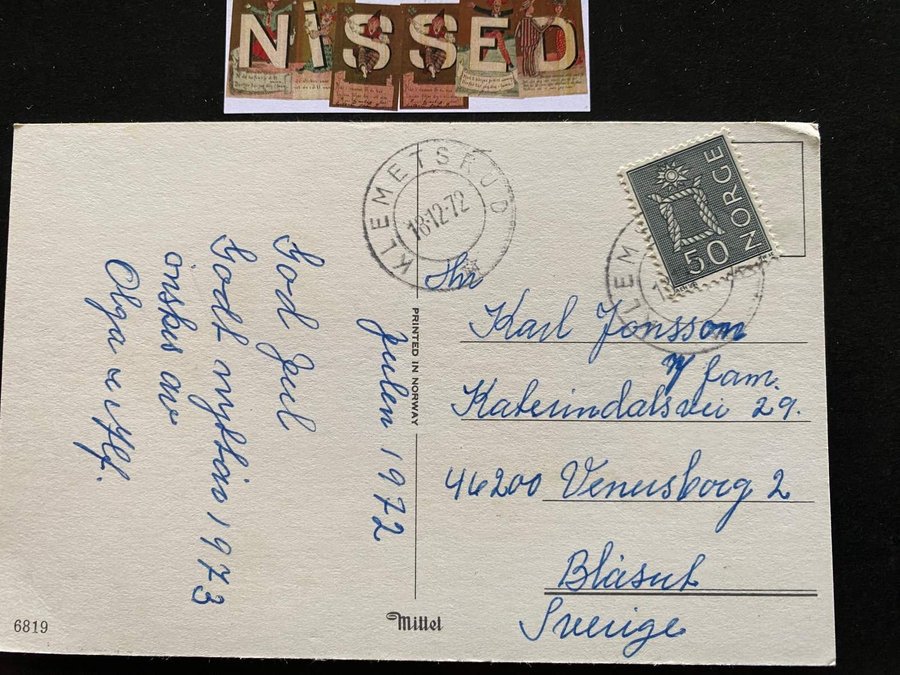 NISSED
KLEMETSRUD
18-12-72
NORGE
50
KLEM
Julen 1972
God Jul
Godt nyttår 1973
önskes av
Olga
PRINTED IN NORWAY
Hr
Karl Jonsson
fam.
Katerindalsvei 29.
46200 Venersborg 2
Blåsut
Sverige
6819
Mittet